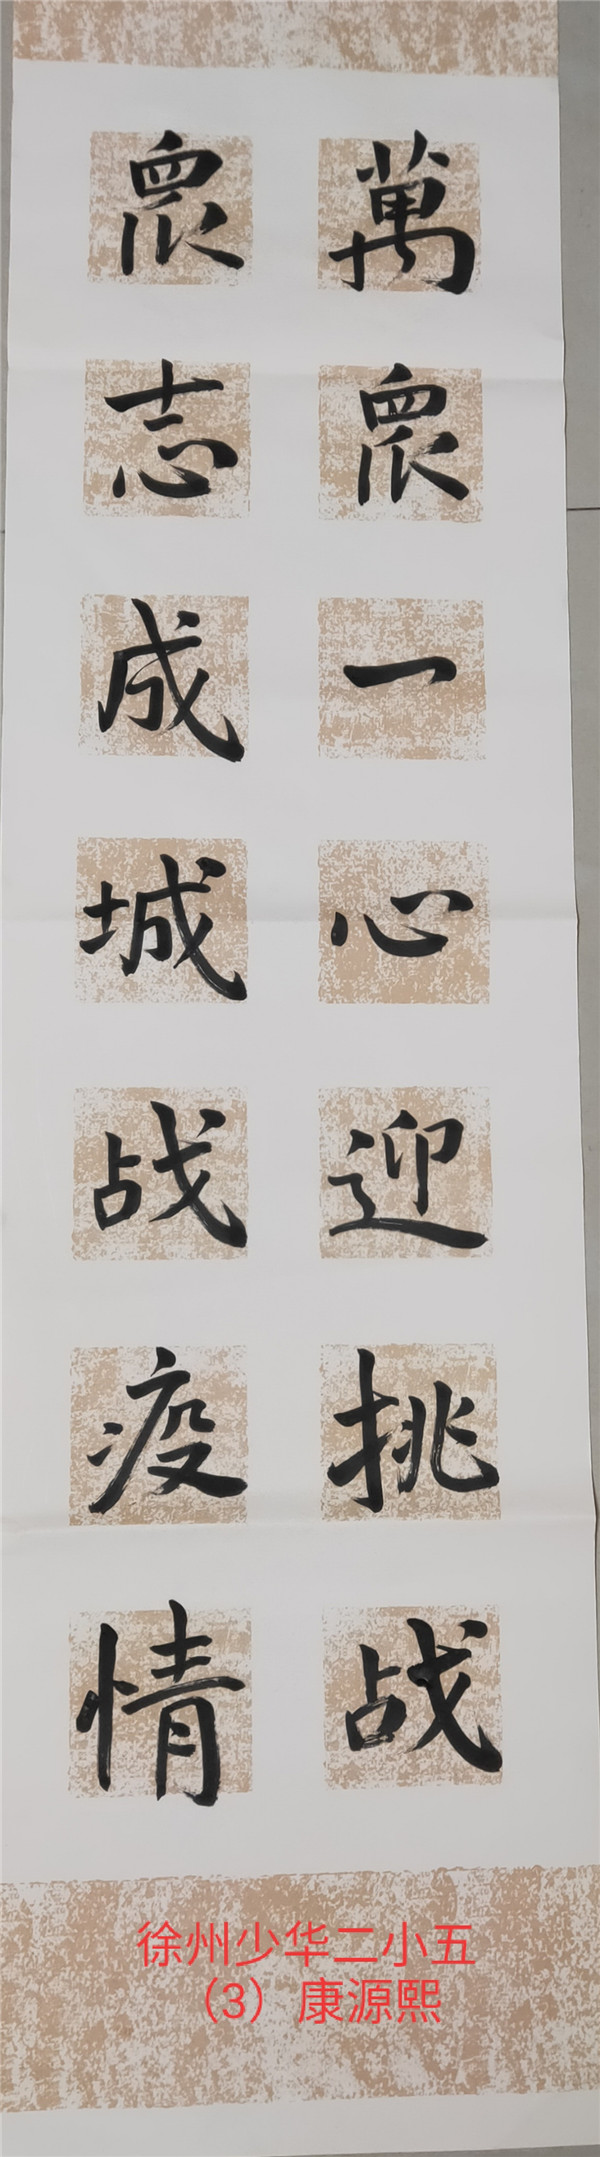 萬眾一心迎挑战
眾志成城战疫情
徐州少华二小五
（3）康源熙